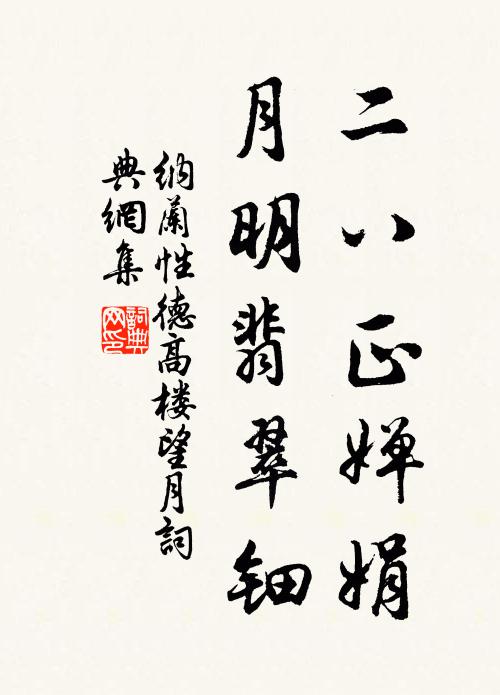 二八正婵娟
月明翡翠钿
纳蘭性德高楼望月詞
典網集
詞典网印